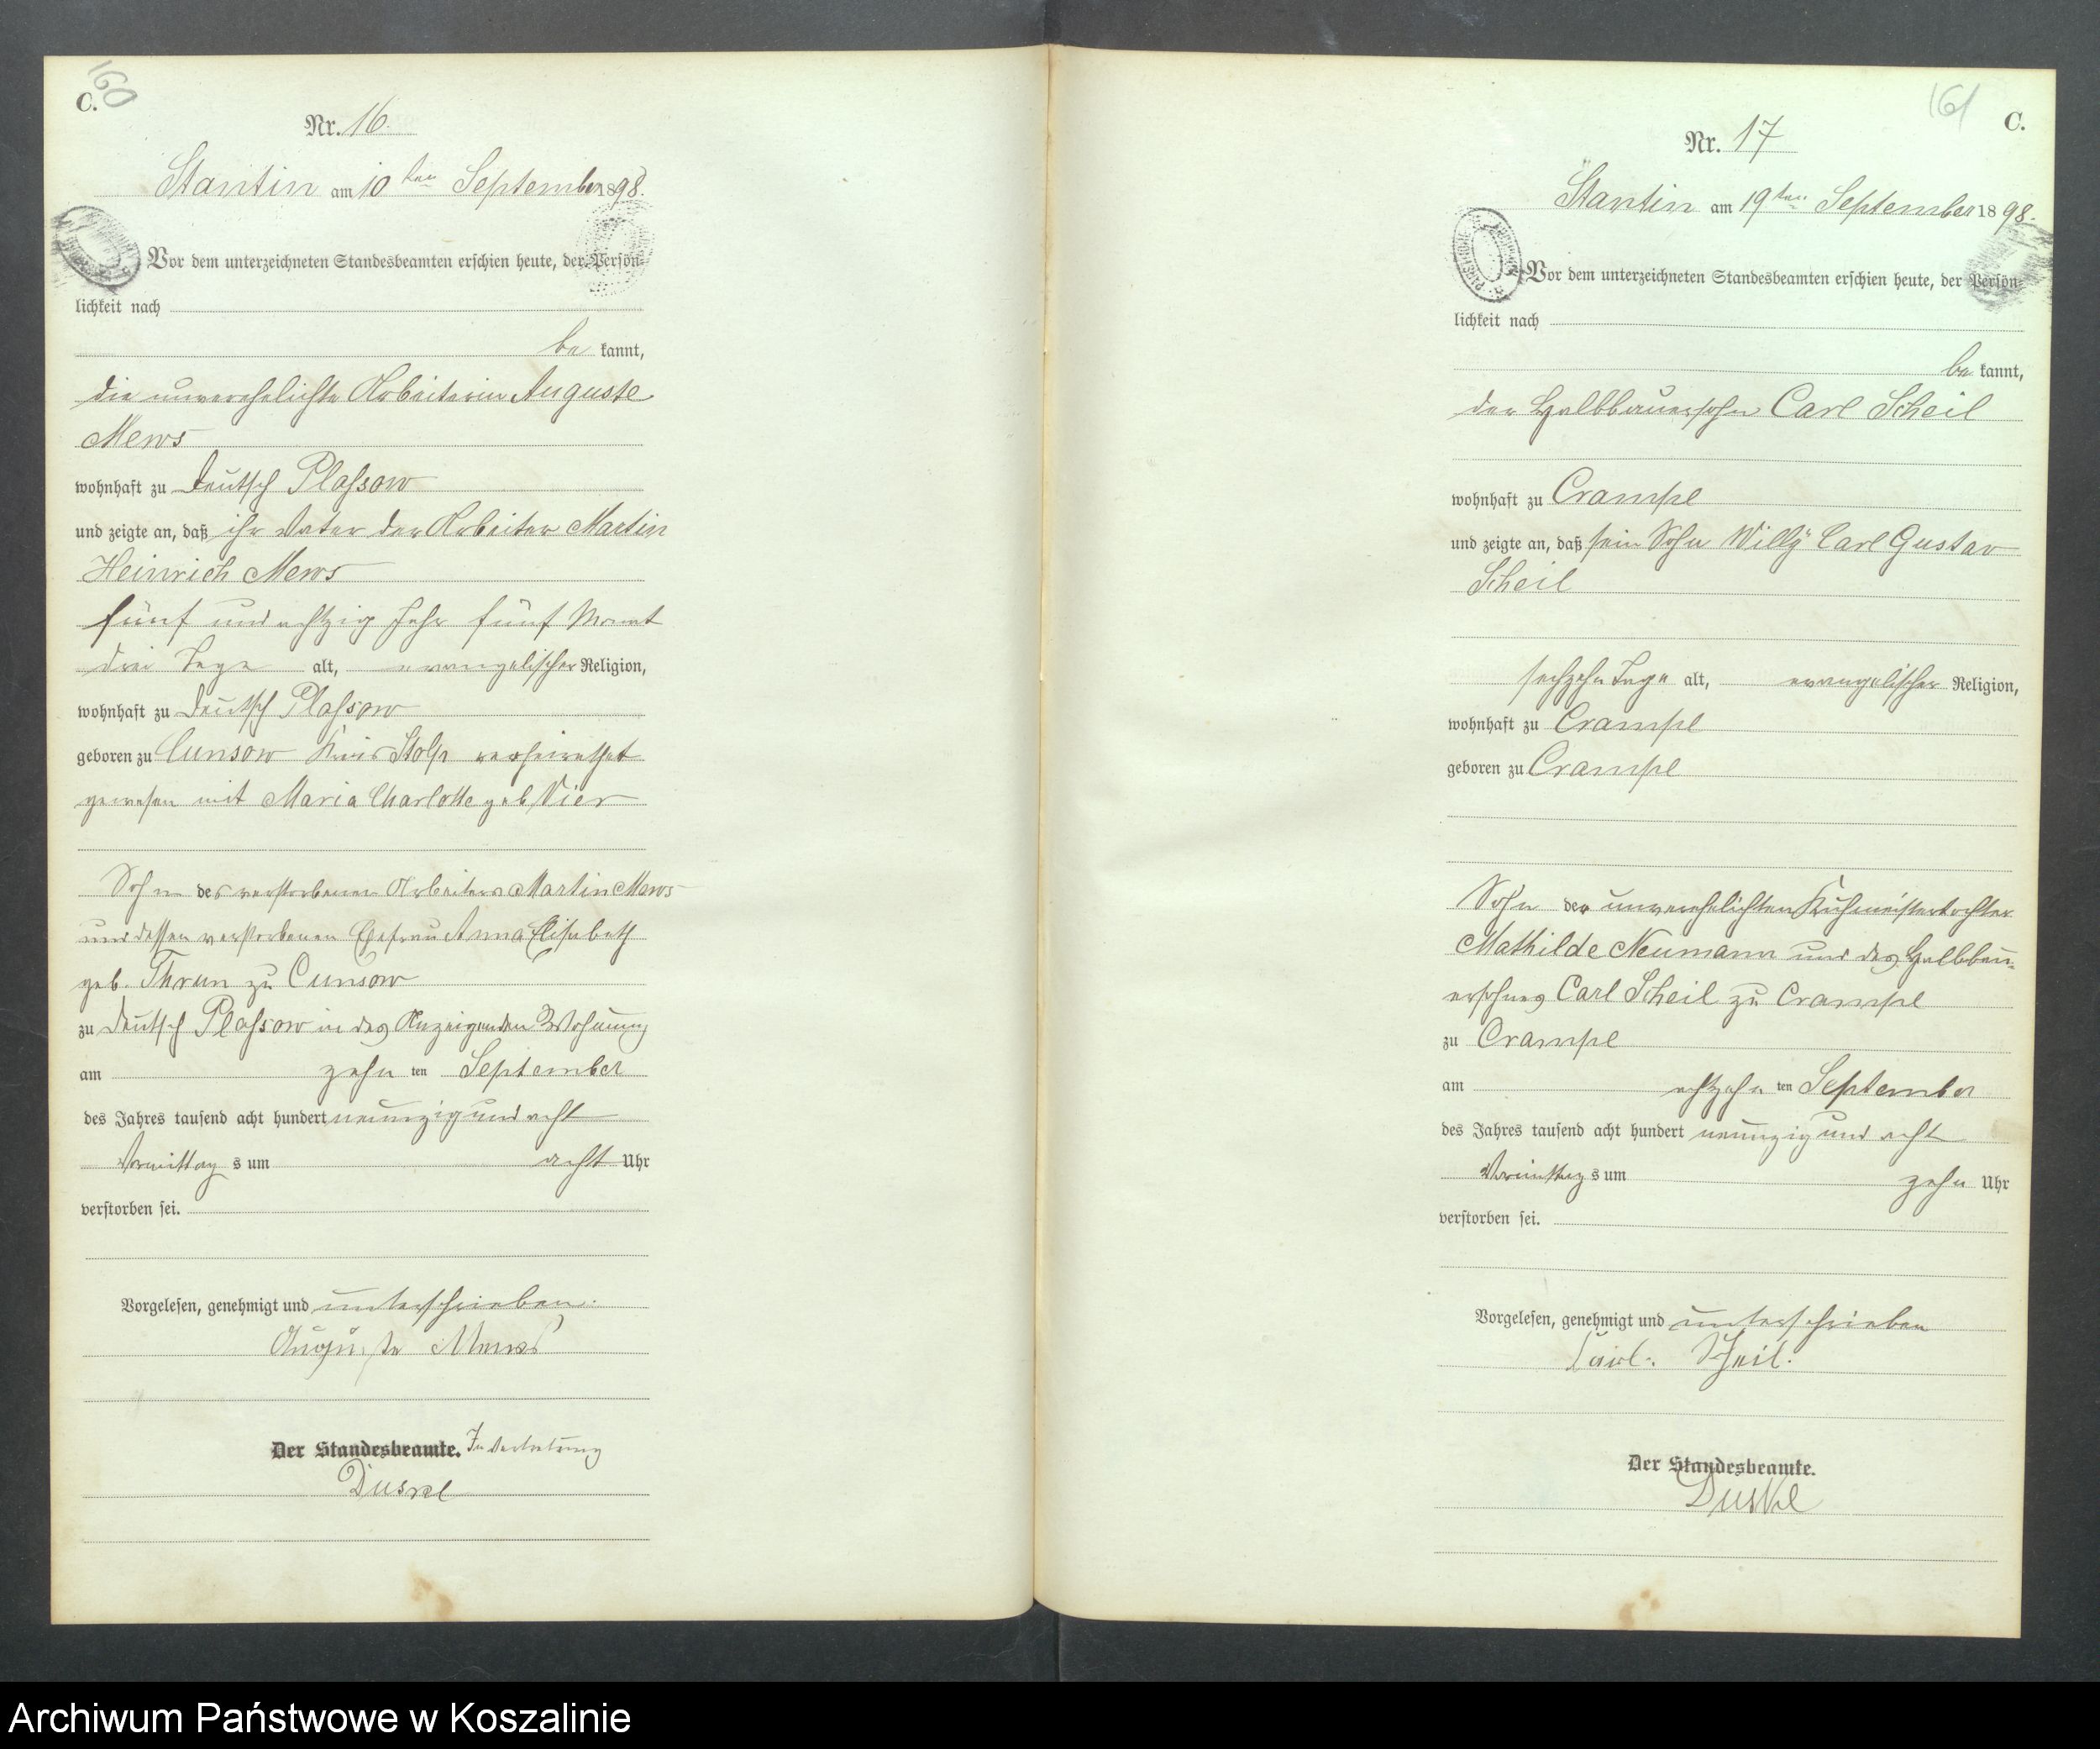 160
C.
Nr. 16.
Stantin am 10 ten September 1898.
Vor dem unterzeichneten Standesbeamten erschien heute, der Persön-
lichkeit nach
be kannt,
die unverehelichte Arbeiterin Auguste
Mews
wohnhaft zu Deutsch Plassow
und zeigte an, daß ihr Vater der Arbeiter Martin
Heinrich Mews
fünf und achtzig Jahr fünf Monat
drei Tage alt, evangelischer Religion,
wohnhaft zu Deutsch Plassow
geboren zu Cunsow Kreis Stolp verheirathet
gewesen mit Maria Charlotte geb. Vier
Sohn des verstorbenen Arbeiters Martin Mews
und dessen verstorbenen Ehefrau Anna Elisabeth
geb. Thrun zu Cunsow
zu Deutsch Plassow in des Anzeigenden Wohnung
am zehn ten September
des Jahres tausend acht hundert neunzig und acht
Vormittag s um acht Uhr
verstorben sei.
Vorgelesen, genehmigt und unterschrieben.
Auguste Mews
Der Standesbeamte. In Vertretung
161
C.
Nr. 17
Stantin am 19 ten September 1898.
Vor dem unterzeichneten Standesbeamten erschien heute, der Persön-
lichkeit nach
be kannt,
der Halbbauersohn Carl Scheil
wohnhaft zu Crampe
und zeigte an, daß sein Sohn Willy Carl Gustav
Scheil
sechzehn Tage alt, evangelischer Religion,
wohnhaft zu Crampe
geboren zu Crampe
Sohn der unverehelichten Kuhmeistertochter
Mathilde Neumann und des Halbbau-
ersohnes Carl Scheil zu Crampe
zu Crampe
am achtzehn ten September
des Jahres tausend acht hundert neunzig und acht
Vormittag s um zehn Uhr
verstorben sei.
Vorgelesen, genehmigt und unterschrieben
Carl Scheil.
Der Standesbeamte.
Archiwum Państwowe w Koszalinie